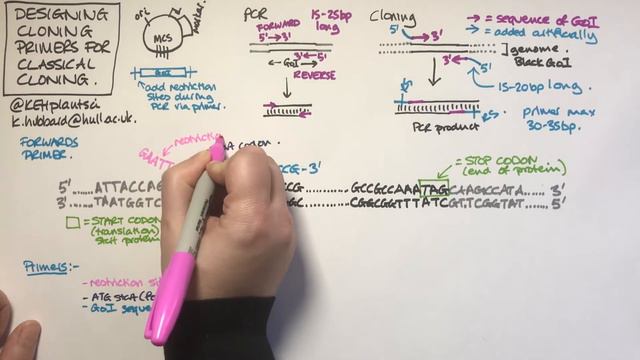 DESIGNING
CLONING
PRIMERS FOR
CLASSICAL
CLONING.
@KEHplantsci
k.hubbard@hull.ac.uk.
ori
marker
MCS
GoI
add restriction
sites during
PCR via primer.
PCR
15-25bp
long
FORWARD
5' 3'
3' 5'
GoI
REVERSE
Cloning
→ = sequence of GoI
→ = added artificially
5' 3'
genome.
Black GoI
3' 5'
15-20bp long.
primer max
30-35bp.
PCR product
FORWARDS
PRIMER.
restrictio
GAATT
CODON.
CCG-3'
= STOP CODON
(end of protein)
5' ....ATTACCAG
CCG..........GCCGCCAAATAGCAAGCCATA.... 3'
3' ....TAATGGTC
GC..........CGGCGGTTTATCGTTCGGTAT..... 5'
= START CODON
(translation)
start protein
Primers:-
- restriction si
- ATG
- GoI seque